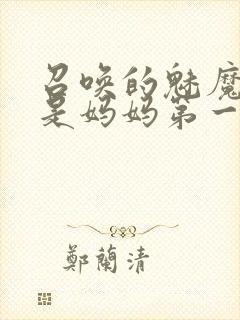 召唤的魅魔
是妈妈第一
鄭蘭清